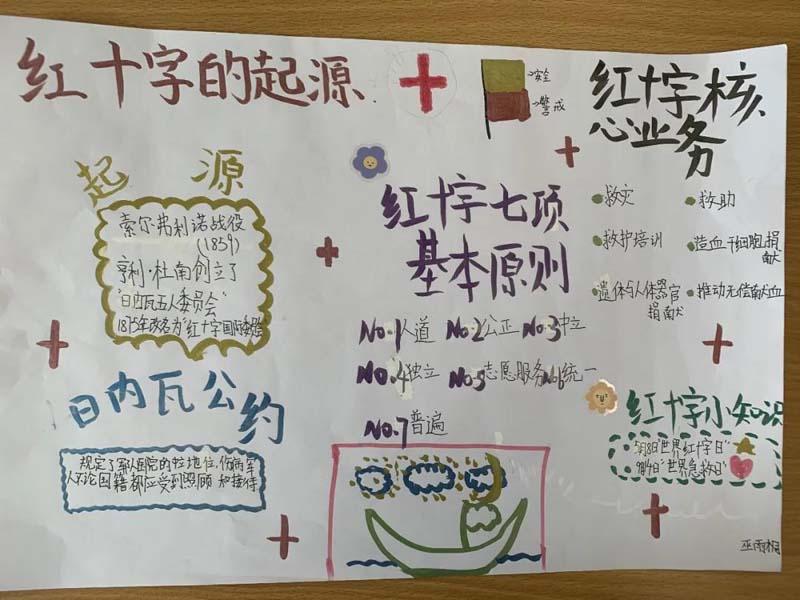 红十字的起源
安全
警戒
红十字核
心业务
起源
索尔弗利诺战役
(1859)
亨利·杜南创立了
"日内瓦五人委员会"
1875年改名为"红十字国际委员会"
红十字七项
基本原则
救灾
救助
救护培训
造血干细胞捐
献
遗体与人体器官
捐献
推动无偿献血
No.1人道 No.2公正 No.3中立
No.4独立 No.5志愿服务 No.6统一
No.7普遍
日内瓦公约
规定了军队医院的中立地位,伤病军
人不论国籍都应受到照顾和接待
红十字小知识
5月8日"世界红十字日"
"世界急救日"
巫雨桐